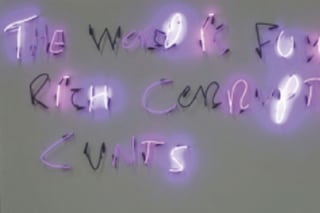 THE WORLD IS FU
RICH CORRUPT
CUNTS